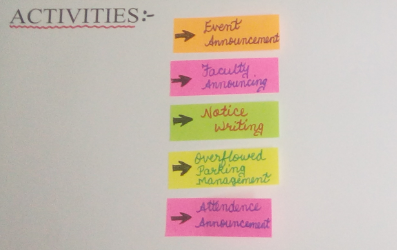 ACTIVITIES:-
Event
Announcement
Faculty
Announcing
Notice
Writing
Overflowed
Parking
Management
Attendence
Announcement